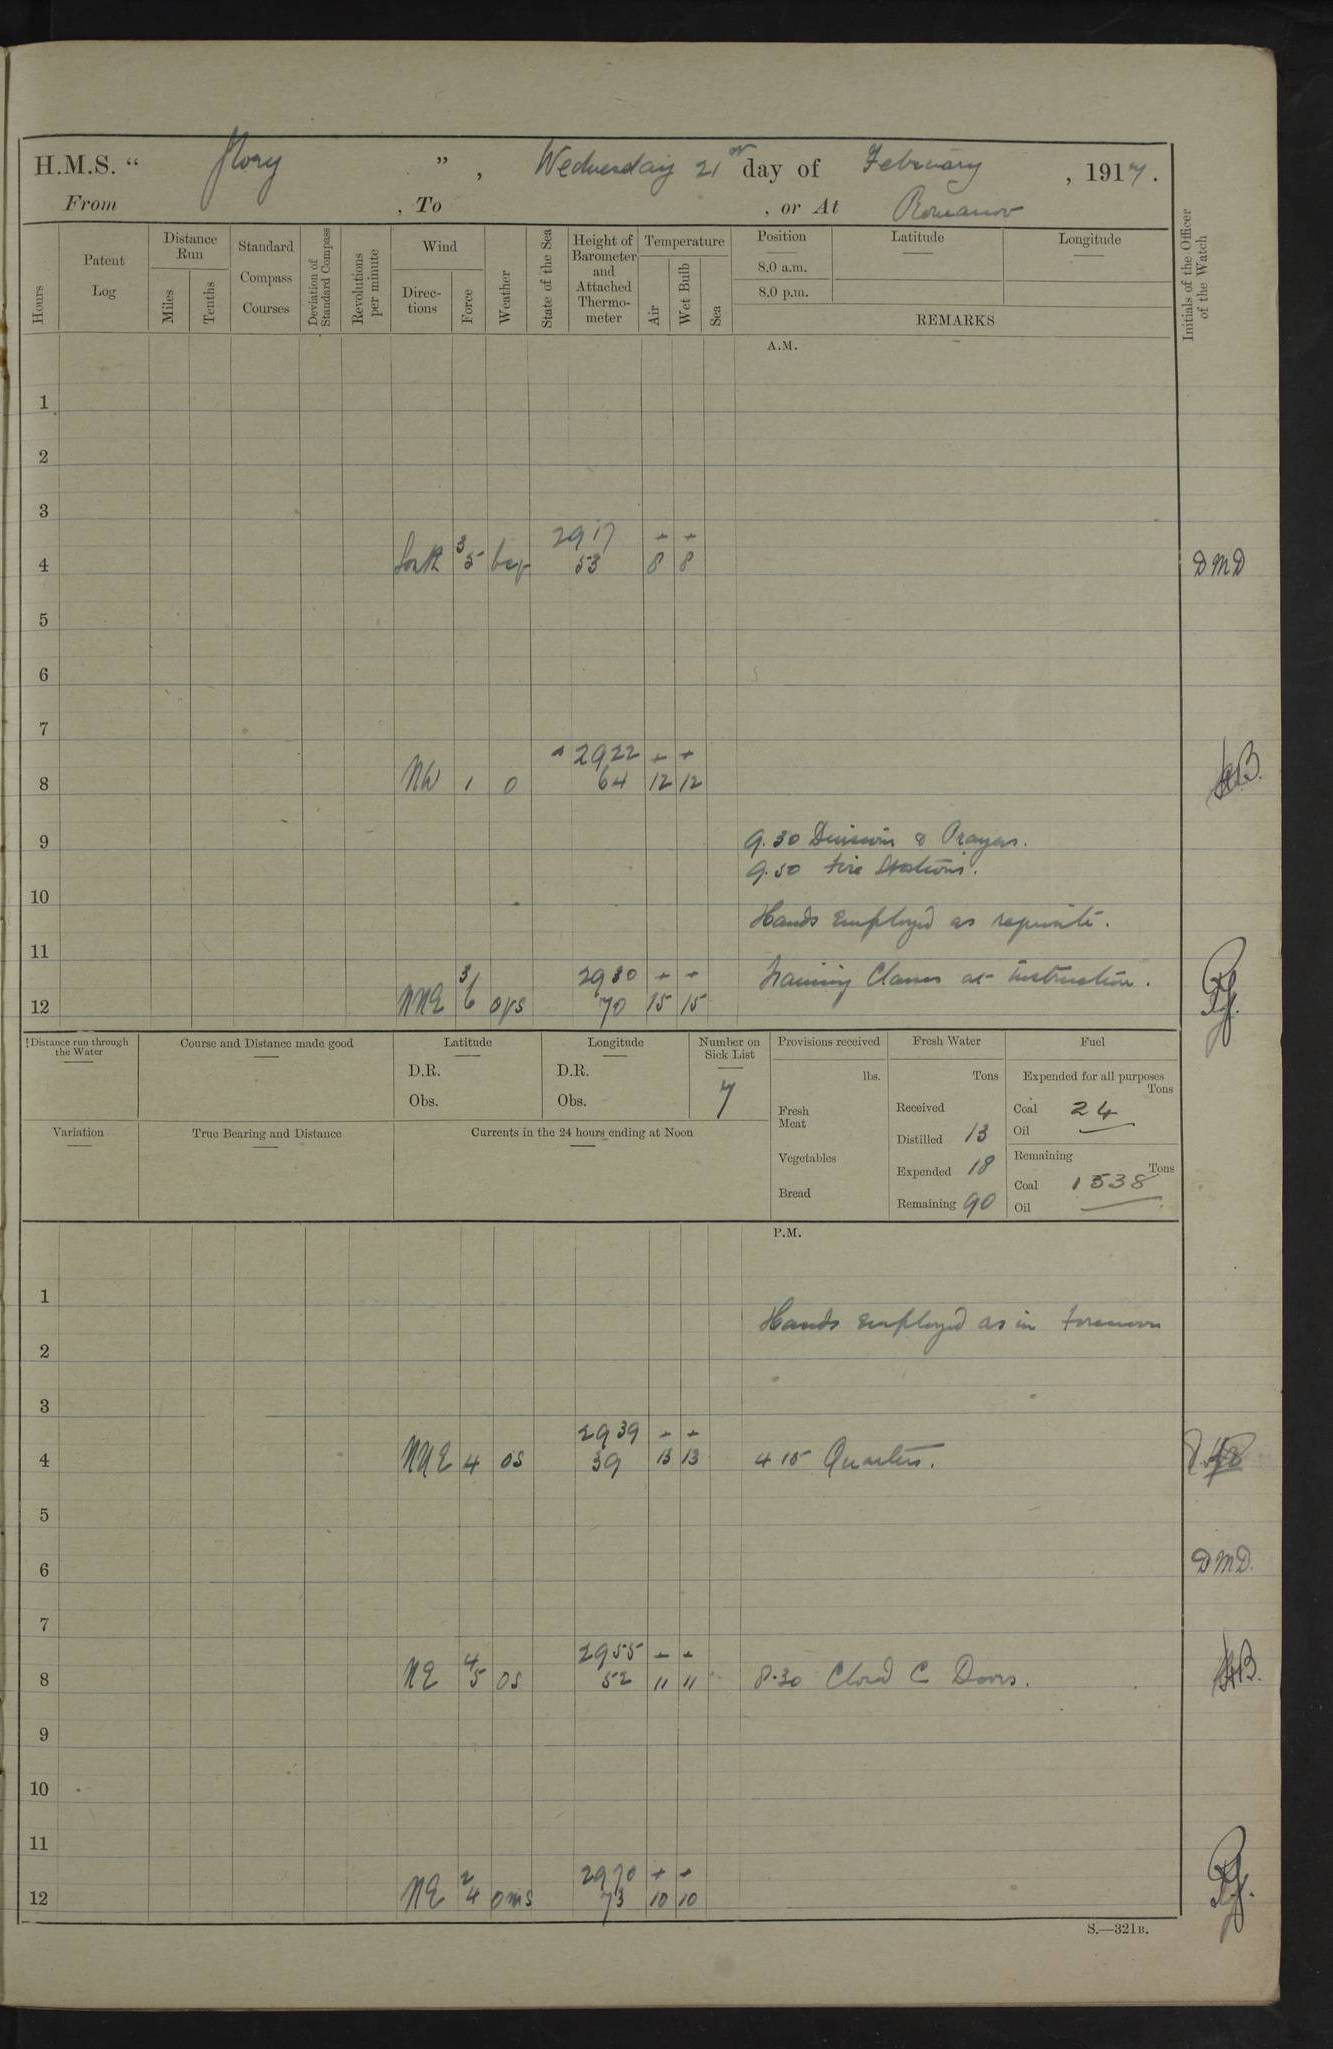 H.M.S. “ Glory ” , Wednesday 21st day of February , 1917 .
From , To , or At Romanov
Hours
Patent Log
Distance Run
Miles
Tenths
Standard Compass Courses
Deviation of Standard Compass
Revolutions per minute
Wind
Directions
Force
Weather
State of the Sea
Height of Barometer and Attached Thermometer
Temperature
Air
Wet Bulb
Sea
Position
8.0 a.m.
8.0 p.m.
Latitude
Longitude
REMARKS
Initials of the Officer of the Watch
A.M.
1
2
3
2917 + +
4 South 3/5 53 8 8 DMD
5
6
7
2922 + +
8 NW 1 o 64 12 12
9 9.30 Divisions & Prayers.
9.50 Fire Stations.
10
Hands Employed as requisite.
11
2930 + + Training Classes at Instruction.
12 NNE 3/6 ops 70 15 15
Distance run through the Water
Course and Distance made good
Latitude
D.R.
Obs.
Longitude
D.R.
Obs.
Number on Sick List
7
Provisions received
lbs.
Fresh Meat
Vegetables
Bread
Fresh Water
Tons
Received
Distilled 13
Expended 18
Remaining 90
Fuel
Expended for all purposes
Tons
Coal 24
Oil —
Remaining
Tons
Coal 1538
Oil —
Variation
True Bearing and Distance
Currents in the 24 hours ending at Noon
P.M.
1
Hands Employed as in forenoon
2
3
2939 + +
4 NNE 4 os 39 13 13 4 15 Quarters.
5
6 DMD.
7
2955 + +
8 NE 4/5 os 52 11 11 8.30 Closed C Doors.
9
10
11
2970 + +
12 NE 2/4 oms 73 10 10
S.—321B.